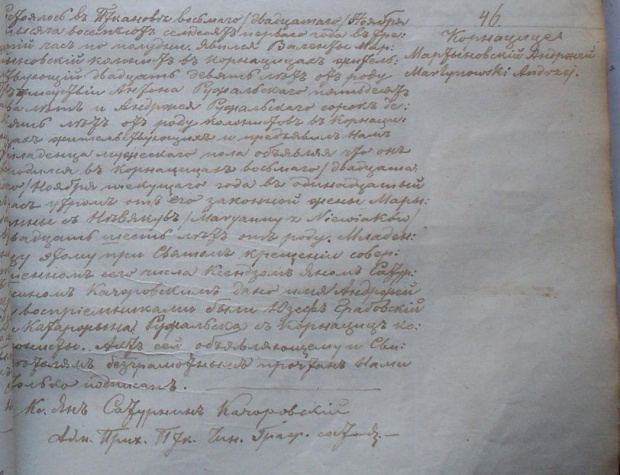 46.
Корнацице
Мартыновскій Андржей
Martynowski Andrzej.
стоялось въ Пткановѣ восьмаго /двадцатаго/ Ноября
тысяча восемьсотъ семдесятъ перваго года въ тре:
часъ по полудни. Явился Валенты Мар:
тыновскій колонистъ въ Корнацицахъ жительс:
твующій двадцать девять лѣтъ отъ роду
Антона Ружальскаго пятьдесятъ
лѣтъ и Андржея Ружальскаго сорокъ
лѣтъ отъ роду колонистовъ въ Корнаци:
цахъ жительствующихъ и предъявилъ намъ
младенца мужескаго пола объявляя что онъ
родился въ Корнацицахъ восьмаго /двадцата:
го/ Ноября текущаго года въ одинадцатый
часъ утромъ отъ его законной жены Марь:
янны съ Нѣвякувъ /Maryanny z Niewiaków/
двадцать шесть лѣтъ отъ роду. Младен:
цу этому при Святомъ крещеніи совер:
шенномъ сего числа Ксендзомъ Яномъ Сатур:
ниномъ Качоровскимъ дано имя Андржей
восприемниками были Юзефъ Грабовскій
и Катаржына Ружальска съ Корнацицъ ко:
лонисты. Актъ сей объявляющему и Сви:
дѣтелямъ безграмотнымъ прочтенъ Нами
только подписанъ.
Кс. Янъ Сатурнинъ Качоровскій
Адм. Прих. Птк. Чин. Граж. сост.